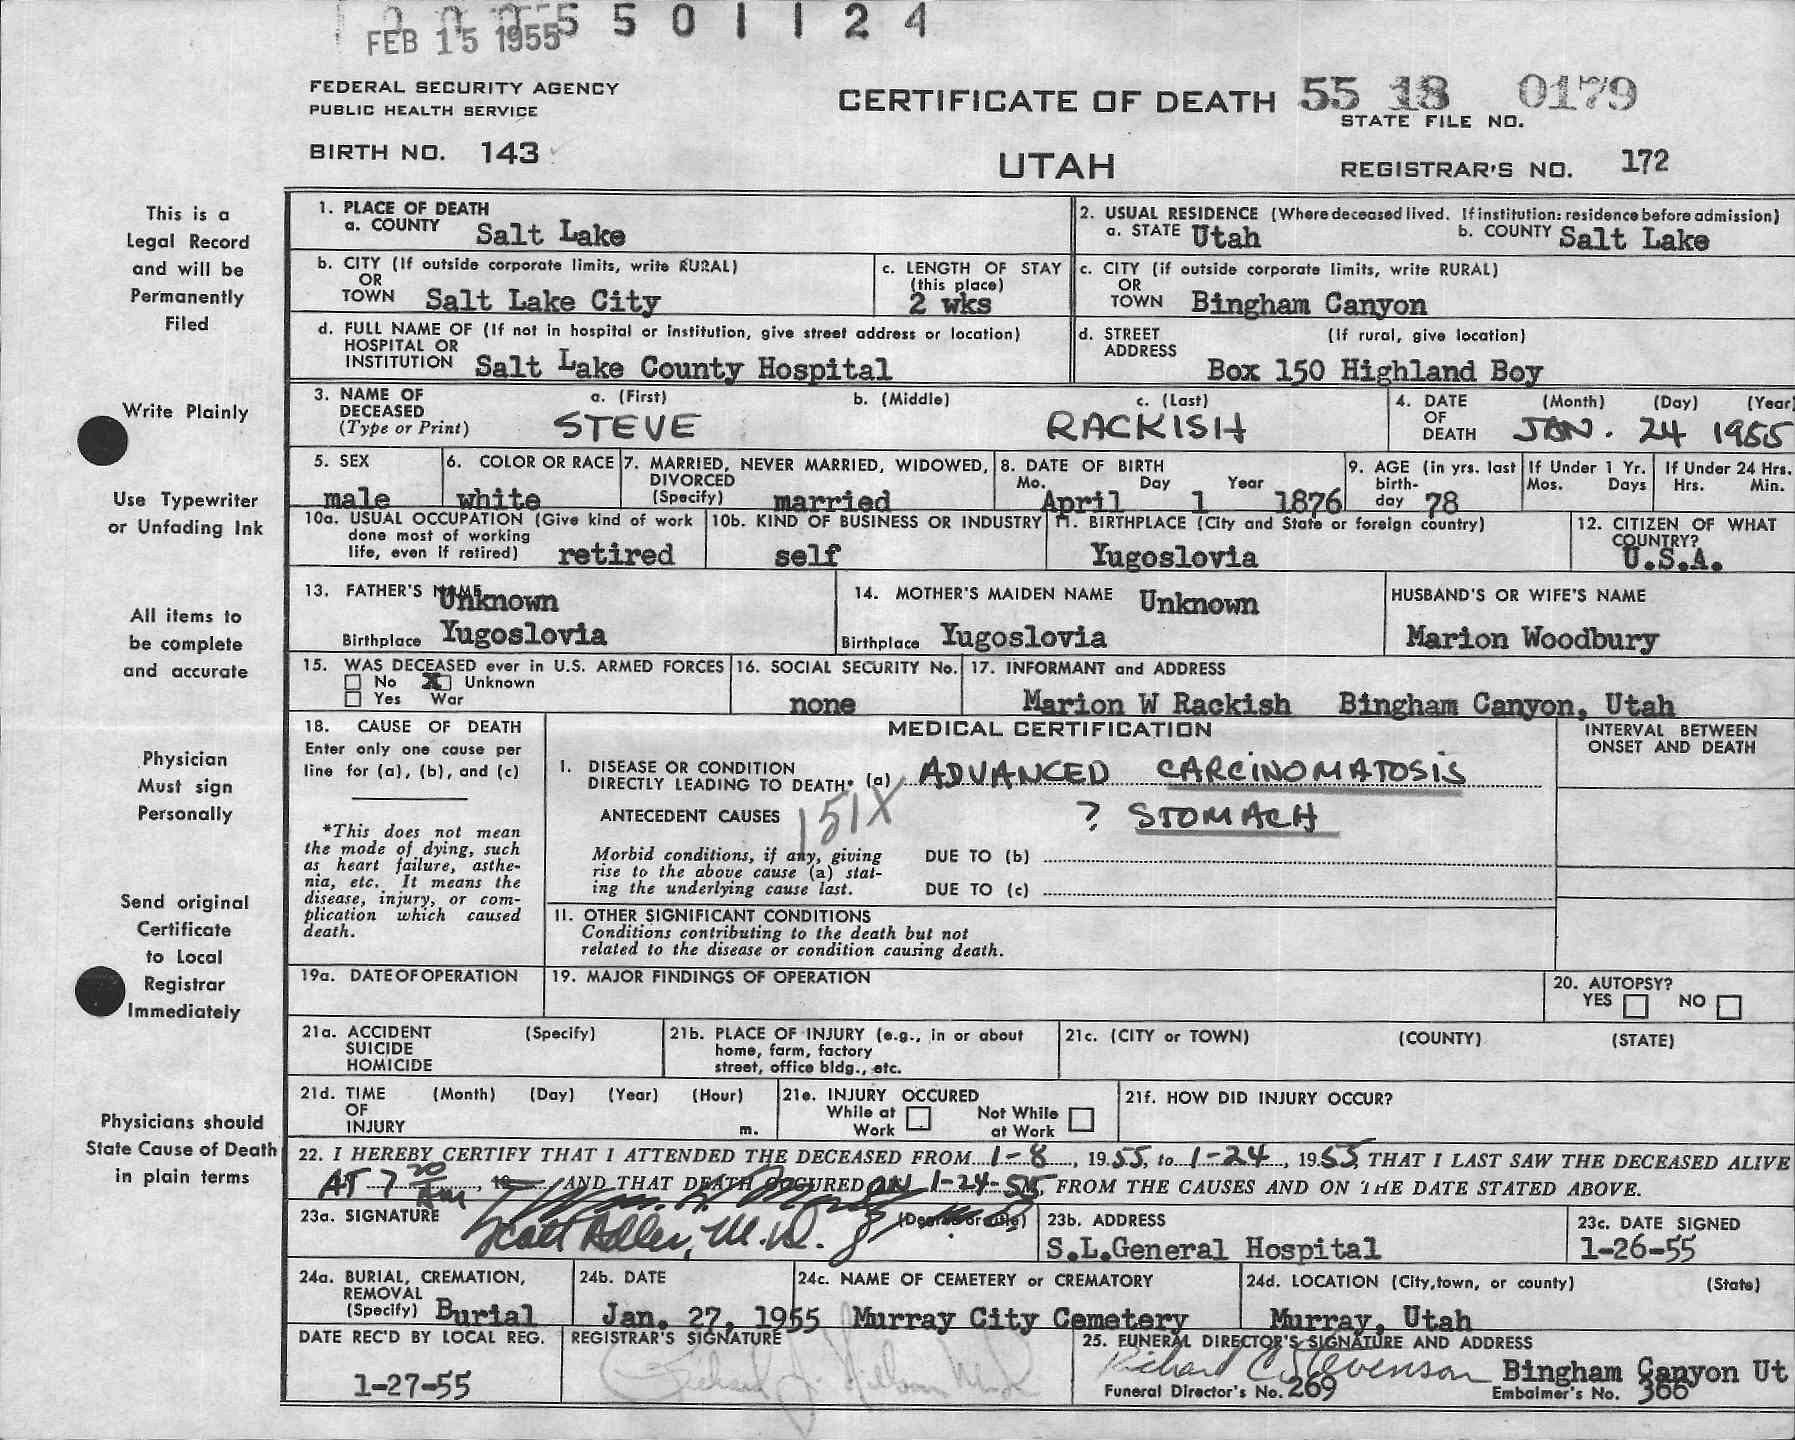 FEB 15 1955 5 5 0 1 1 2 4
FEDERAL SECURITY AGENCY
PUBLIC HEALTH SERVICE
CERTIFICATE OF DEATH 55 18 0179
STATE FILE NO.
BIRTH NO. 143
UTAH
REGISTRAR'S NO. 172
This is a
Legal Record
and will be
Permanently
Filed
Write Plainly
Use Typewriter
or Unfading Ink
All items to
be complete
and accurate
Physician
Must sign
Personally
Send original
Certificate
to Local
Registrar
Immediately
Physicians should
State Cause of Death
in plain terms
1. PLACE OF DEATH
a. COUNTY Salt Lake
2. USUAL RESIDENCE (Where deceased lived. If institution: residence before admission)
a. STATE Utah b. COUNTY Salt Lake
b. CITY (If outside corporate limits, write RURAL)
OR
TOWN Salt Lake City
c. LENGTH OF STAY
(this place)
2 wks
c. CITY (if outside corporate limits, write RURAL)
OR
TOWN Bingham Canyon
d. FULL NAME OF (If not in hospital or institution, give street address or location)
HOSPITAL OR
INSTITUTION Salt Lake County Hospital
d. STREET (If rural, give location)
ADDRESS
Box 150 Highland Boy
3. NAME OF a. (First) b. (Middle) c. (Last)
DECEASED
(Type or Print) STEVE RACKISH
4. DATE (Month) (Day) (Year)
OF
DEATH JAN. 24 1955
5. SEX
male
6. COLOR OR RACE
white
7. MARRIED, NEVER MARRIED, WIDOWED,
DIVORCED
(Specify) married
8. DATE OF BIRTH
Mo. Day Year
April 1 1876
9. AGE (in yrs. last
birth-
day 78
If Under 1 Yr.
Mos. Days
If Under 24 Hrs.
Hrs. Min.
10a. USUAL OCCUPATION (Give kind of work
done most of working
life, even if retired) retired
10b. KIND OF BUSINESS OR INDUSTRY
self
11. BIRTHPLACE (City and State or foreign country)
Yugoslovia
12. CITIZEN OF WHAT
COUNTRY?
U.S.A.
13. FATHER'S NAME Unknown
Birthplace Yugoslovia
14. MOTHER'S MAIDEN NAME Unknown
Birthplace Yugoslovia
HUSBAND'S OR WIFE'S NAME
Marion Woodbury
15. WAS DECEASED ever in U.S. ARMED FORCES
No X Unknown
Yes War
16. SOCIAL SECURITY No.
none
17. INFORMANT and ADDRESS
Marion W Rackish Bingham Canyon, Utah
18. CAUSE OF DEATH
Enter only one cause per
line for (a), (b), and (c)
*This does not mean
the mode of dying, such
as heart failure, asthe-
nia, etc. It means the
disease, injury, or com-
plication which caused
death.
MEDICAL CERTIFICATION
INTERVAL BETWEEN
ONSET AND DEATH
I. DISEASE OR CONDITION
DIRECTLY LEADING TO DEATH* (a) ADVANCED CARCINOMATOSIS
ANTECEDENT CAUSES 151X ? STOMACH
Morbid conditions, if any, giving
rise to the above cause (a) stat-
ing the underlying cause last.
DUE TO (b)
DUE TO (c)
II. OTHER SIGNIFICANT CONDITIONS
Conditions contributing to the death but not
related to the disease or condition causing death.
19a. DATE OF OPERATION
19. MAJOR FINDINGS OF OPERATION
20. AUTOPSY?
YES NO
21a. ACCIDENT (Specify)
SUICIDE
HOMICIDE
21b. PLACE OF INJURY (e.g., in or about
home, farm, factory
street, office bldg., etc.
21c. (CITY or TOWN) (COUNTY) (STATE)
21d. TIME (Month) (Day) (Year) (Hour)
OF
INJURY m.
21e. INJURY OCCURED
While at Work Not While at Work
21f. HOW DID INJURY OCCUR?
22. I HEREBY CERTIFY THAT I ATTENDED THE DECEASED FROM 1-8, 1955, to 1-24, 1955, THAT I LAST SAW THE DECEASED ALIVE
AT 7 20 AM, 19 AND THAT DEATH OCCURED ON 1-24-55, FROM THE CAUSES AND ON THE DATE STATED ABOVE.
23a. SIGNATURE (Degree or title)
Scott Adler, M.D.
23b. ADDRESS
S.L.General Hospital
23c. DATE SIGNED
1-26-55
24a. BURIAL, CREMATION,
REMOVAL
(Specify) Burial
24b. DATE
Jan. 27, 1955
24c. NAME OF CEMETERY or CREMATORY
Murray City Cemetery
24d. LOCATION (City, town, or county) (State)
Murray, Utah
DATE REC'D BY LOCAL REG.
1-27-55
REGISTRAR'S SIGNATURE
25. FUNERAL DIRECTOR'S SIGNATURE AND ADDRESS
Richard C. Stevenson Bingham Canyon Ut
Funeral Director's No. 269 Embalmer's No. 366